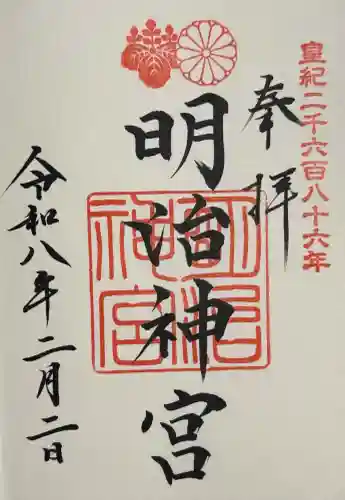 皇紀二千六百八十六年
奉拝
明治神宮
明治神宮
令和八年二月二日